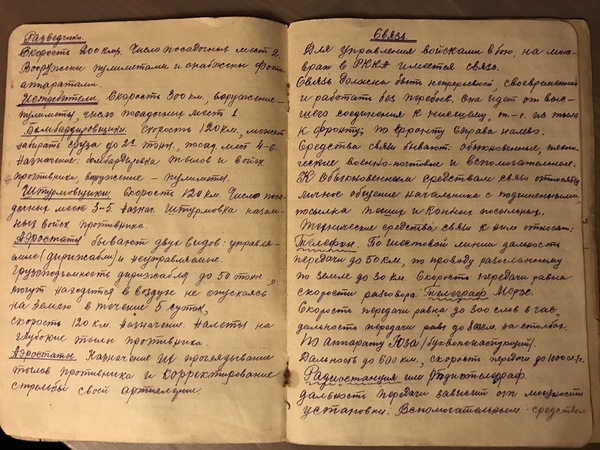 Разведчики.
Скорость 200 км/ч. Число посадочных мест 2.
Вооружены пулиметами и снабжены фото-
аппаратами.
Истребители. Скорость 300 км, вооружение-
пулиметы, число посадочных мест 1
Бомбардировщики. Скорость 120 км, может
забирать груза до 2т тонн, посад. мест 4-6.
Назначение: бомбардировка тылов и войск
противника, вооружение - пулиметы.
Штурмовщики: скорость 120 км. Число поса-
дочных мест 3-5. Назнач. штурмовка назем-
ных войск противника.
Аэростаты бывают двух видов: управля-
емые /дирижабли/ и неуправляемые.
Грузоподъемность дирижабля до 50 тонн,
могут находится в воздухе не опускаясь
на землю в течение 5 суток,
скорость 120 км. Назначение: Налеты на
глубокие тылы противника.
Аэростаты. Назначение их проглядывание
тылов противника и корректирование
стрельбы своей артиллерии.
Связь.
Для управления войсками в бою, на мон-
врах в РККА имеется связь.
Связь должна быть непрерывной, своевременной
и работать без перебоев, она идет от выс-
шего соединения к низшему, т-е. из тыла
к фронту; по фронту справа налево.
Средства связи бывают: обыкновенные, техни-
ческие военно-почтовые и вспомогательные.
К обыкновенным средствам связи относятся
личное общение начальника с подчиненными
посылка пеших и конных посыльных.
Технические средства связи к ним относят:
Телефон. По шестовой линии дальность
передачи до 50 км, по проводу разосланному
по земле до 30 км. Скорость передачи равна
скорости разговора. Телеграф Морзе.
Скорость передачи равна до 300 слов в час,
дальность передачи равн до 800км. на столбах.
По аппарату Юза /буквопечатующий/.
Дальность до 600 км., скорость передачи до 1000
Радиостанция или радиотелеграф.
дальность передачи зависит от мощности
установки. Вспомогательным средством